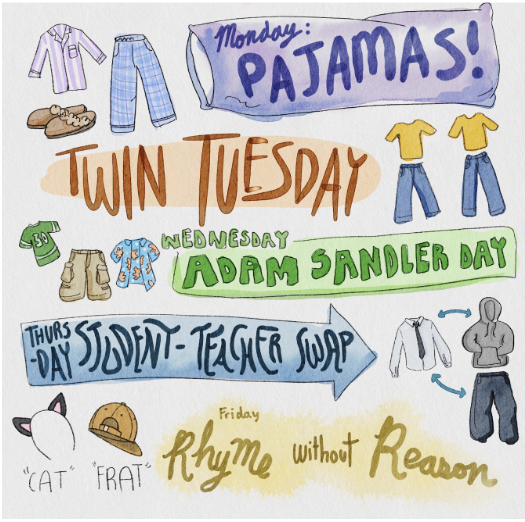 Monday:
PAJAMAS!
TWIN TUESDAY
30
WEDNESDAY
ADAM SANDLER DAY
THURS
-DAY STUDENT-TEACHER SWAP
Friday
Rhyme without Reason
"CAT" "FRAT"